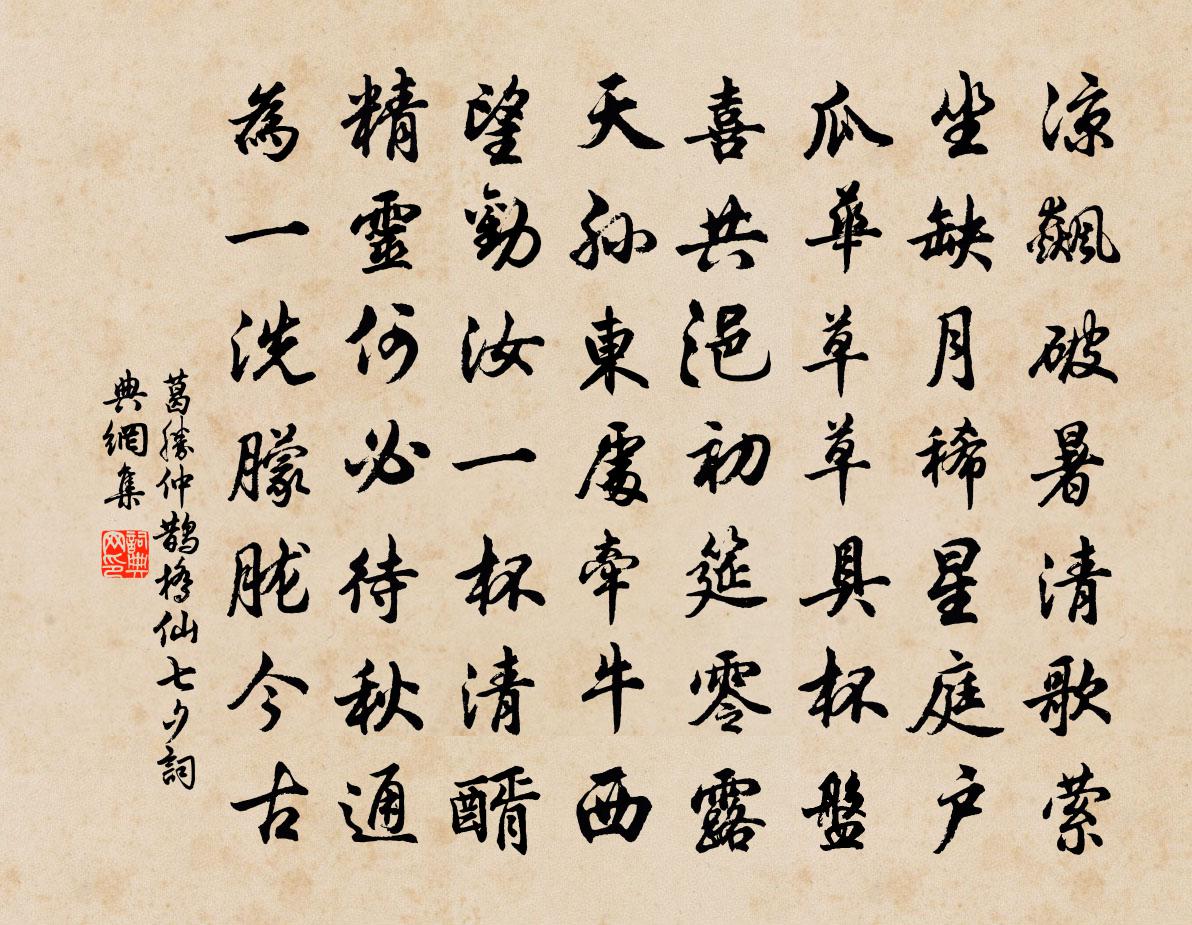 涼飆破暑清歌萦
坐缺月稀星庭户
瓜華草草具杯盤
喜共浥初筵零露
天孙東處牽牛西
望勸汝一杯清醑
精靈何必待秋通
為一洗朦胧今古
葛勝仲鵲橋仙七夕詞
典網集
詞典
网印